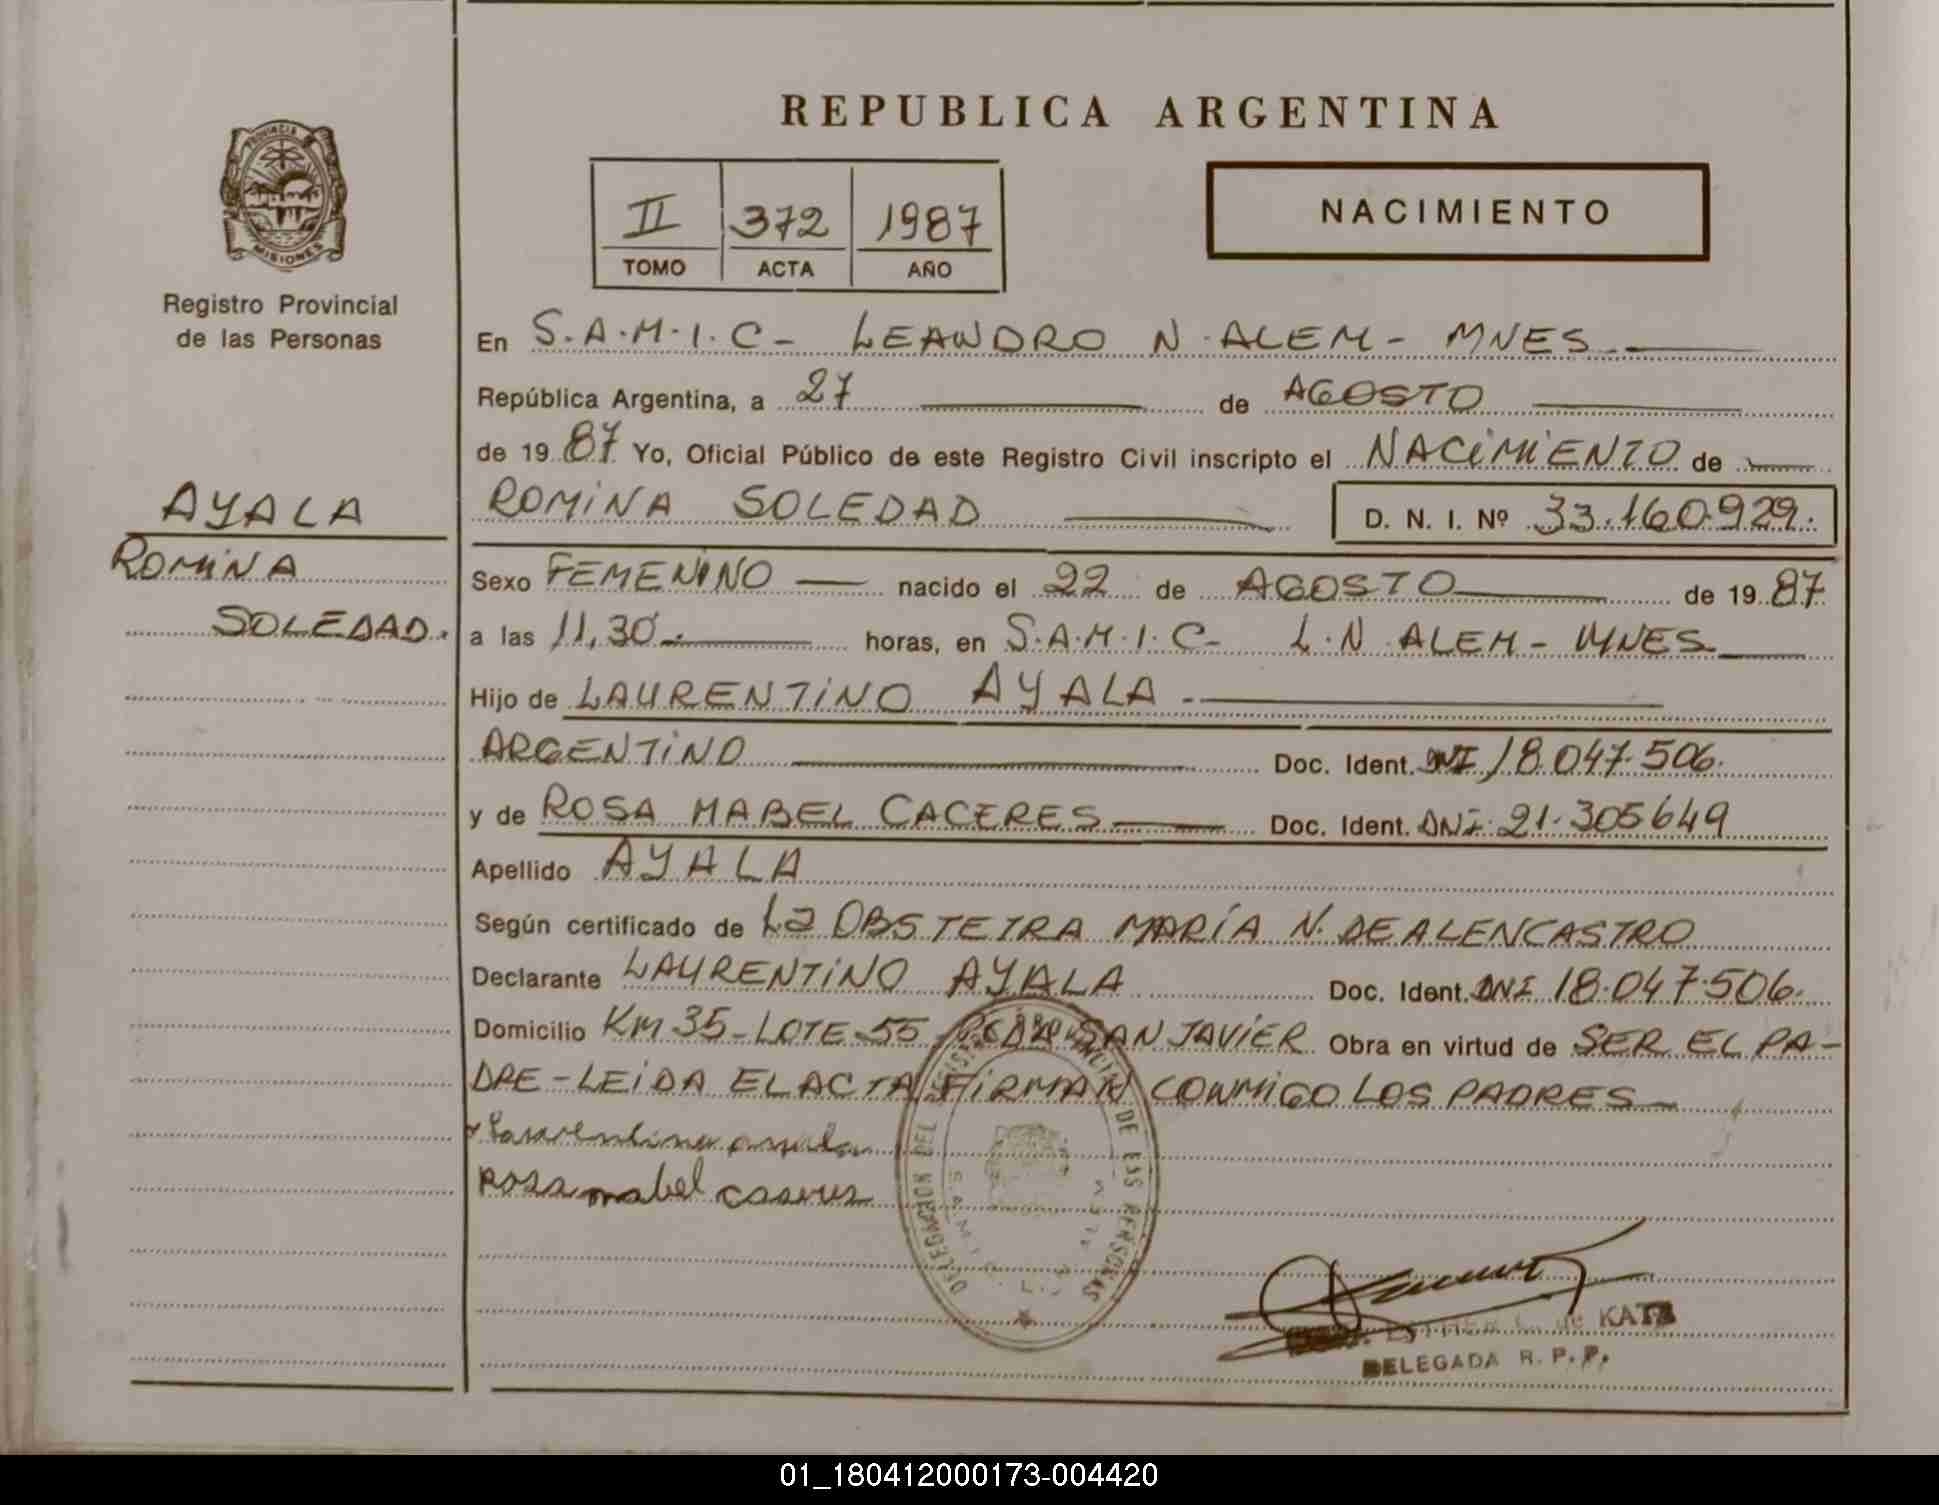 REPUBLICA ARGENTINA
PROVINCIA DE
MISIONES
Registro Provincial
de las Personas
II 372 1987
TOMO ACTA AÑO
NACIMIENTO
En S.A.M.I.C- LEANDRO N. ALEM- MNES
República Argentina, a 27 de AGOSTO
de 1987 Yo, Oficial Público de este Registro Civil inscripto el NACIMIENTO de
ROMINA SOLEDAD D. N. I. Nº 33.160.929.
AYALA
ROMINA
SOLEDAD.
Sexo FEMENINO nacido el 22 de AGOSTO de 1987
a las 11,30. horas, en S.A.M.I.C- L.N. ALEM- MNES
Hijo de LAURENTINO AYALA
ARGENTINO Doc. Ident. DNI 18.047.506.
y de ROSA MABEL CACERES Doc. Ident. DNI. 21.305649
Apellido AYALA
Según certificado de La OBSTETRA MARÍA N. DE ALENCASTRO
Declarante LAURENTINO AYALA Doc. Ident. DNI 18.047.506.
Domicilio KM 35-LOTE-55 SAN JAVIER Obra en virtud de SER EL PA-
DRE-LEIDA EL ACTA FIRMAN CONMIGO LOS PADRES
Laurentino ayala
rosa mabel caseres
DELEGACION DEL REGISTRO PROVINCIAL DE LAS PERSONAS
ESTHER de KATZ
DELEGADA R. P. P.
01_180412000173-004420